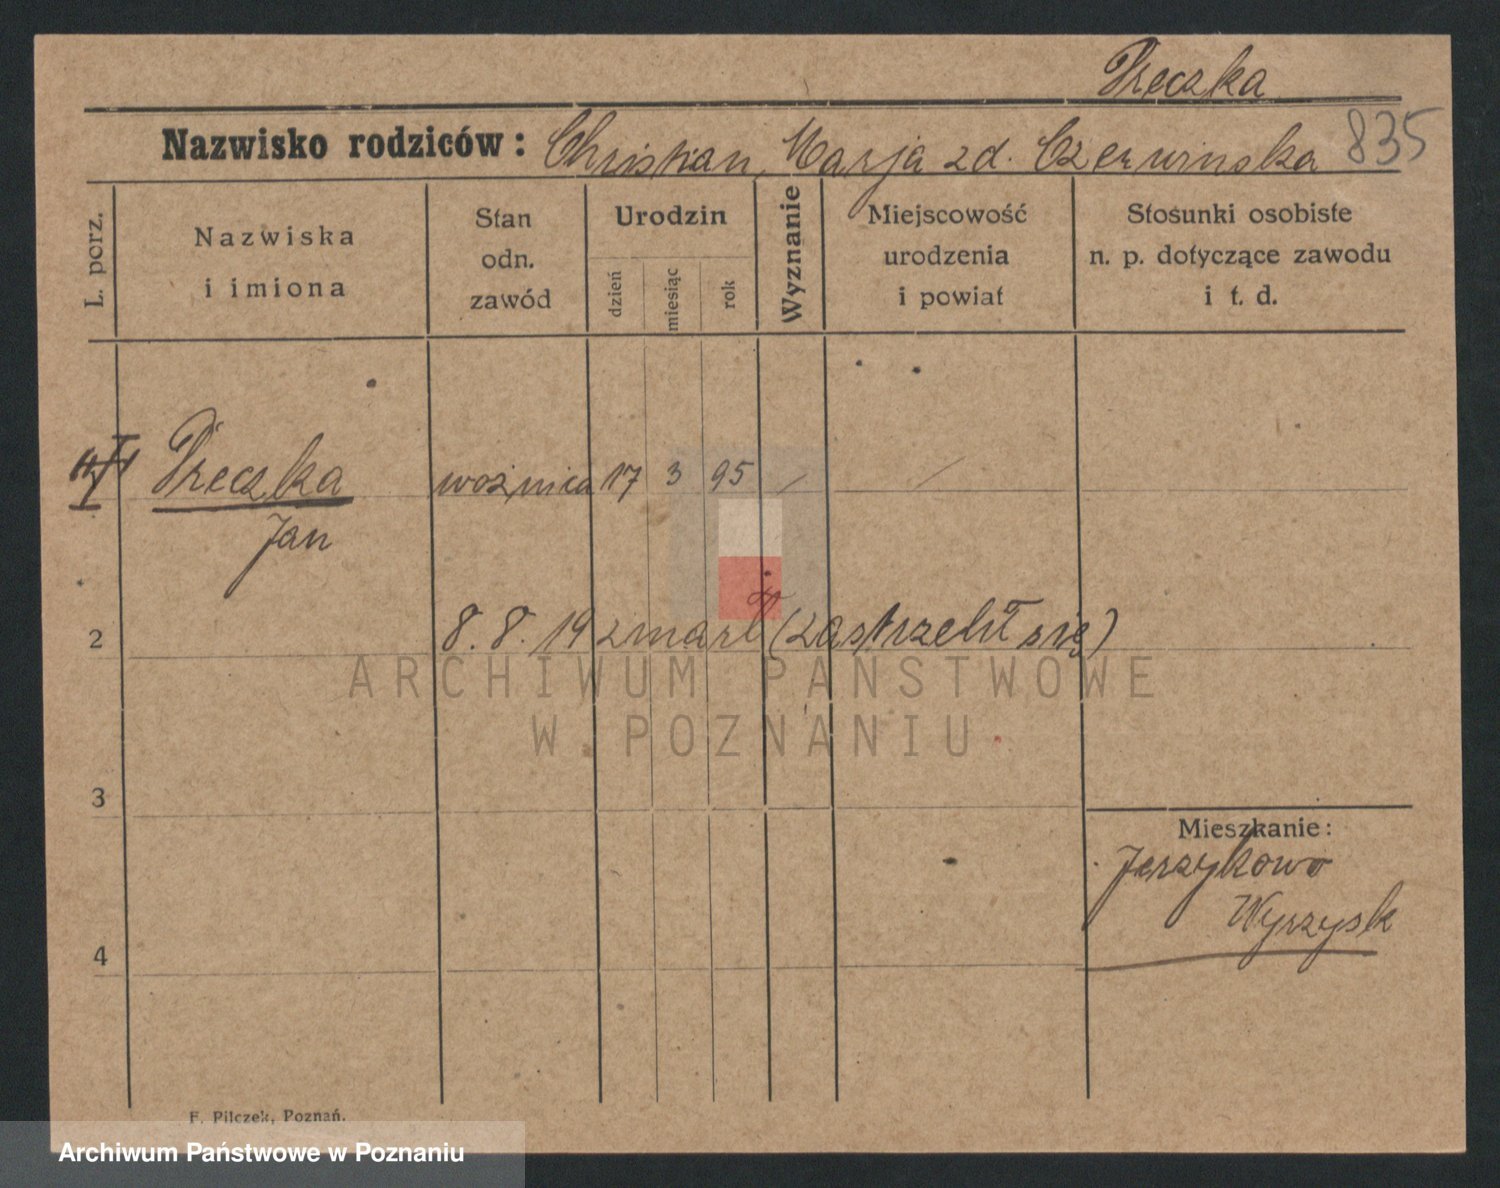 Preczka
Nazwisko rodziców: Christian, Marja zd. Czerwinska 835
L. porz.
Nazwiska
i imiona
Stan
odn.
zawód
Urodzin
dzień
miesiąc
rok
Wyznanie
Miejscowość
urodzenia
i powiat
Stosunki osobiste
n. p. dotyczące zawodu
i t. d.
Preczka woźnica 17 3 95 / /
Jan
2 8. 8. 19 zmarł (zastrzelił się)
ARCHIWUM PAŃSTWOWE
W POZNANIU
3
Mieszkanie:
Jerzykowo
Wyrzysk
4
F. Pilczek, Poznań.
Archiwum Państwowe w Poznaniu